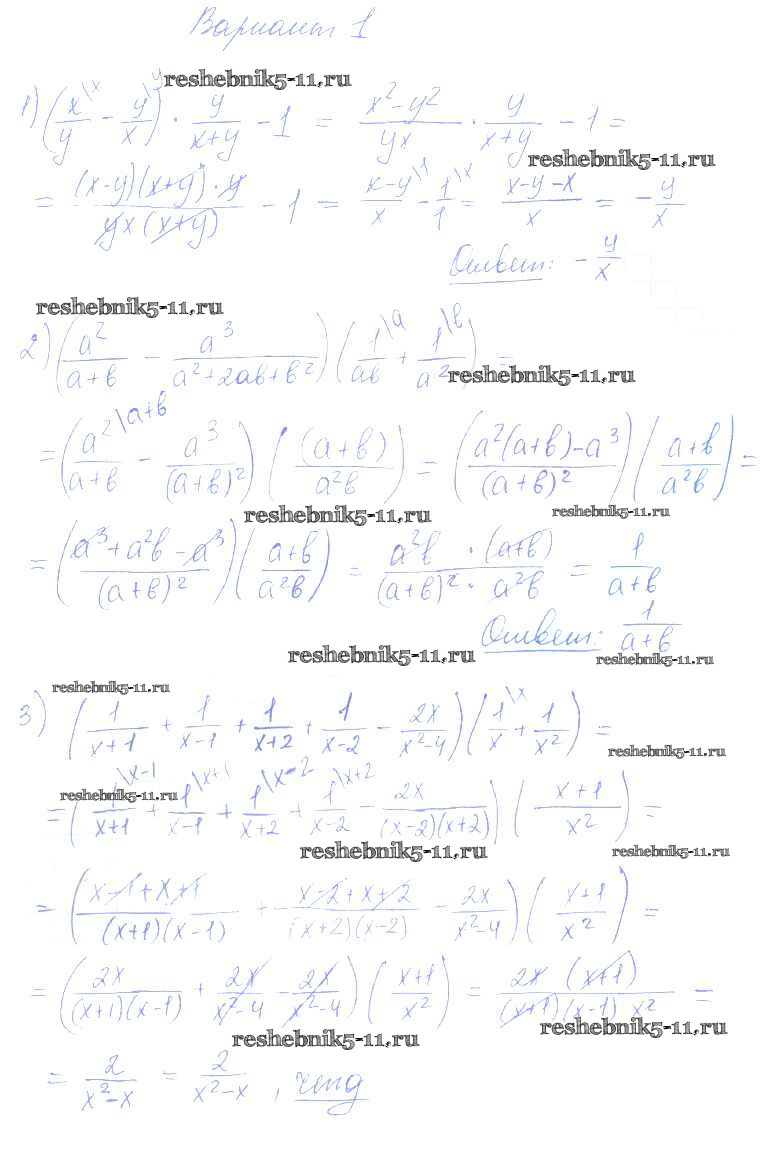 Вариант 1
reshebnik5-11.ru
1) (x\x/y - y\y/x) · y/(x+y) - 1 = (x²-y²)/(yx) · y/(x+y) - 1 =
reshebnik5-11.ru
= ((x-y)(x+y)·y)/(yx(x+y)) - 1 = (x-y)\1/x - 1\x/1 = (x-y-x)/x = -y/x
Ответ: -y/x
reshebnik5-11.ru
2) (a²/(a+b) - a³/(a²+2ab+b²)) (1\a/ab + 1\b/a²) =
reshebnik5-11.ru
= (a²\a+b/(a+b) - a³/(a+b)²) ((a+b)/(a²b)) = ((a²(a+b)-a³)/(a+b)²) ((a+b)/(a²b)) =
reshebnik5-11.ru reshebnik5-11.ru
= ((a³+a²b-a³)/(a+b)²) ((a+b)/(a²b)) = (a²b · (a+b))/((a+b)² · a²b) = 1/(a+b)
Ответ: 1/(a+b)
reshebnik5-11.ru reshebnik5-11.ru
reshebnik5-11.ru
3) (1/(x+1) + 1/(x-1) + 1/(x+2) + 1/(x-2) - 2x/(x²-4)) (1\x/x + 1/x²) =
reshebnik5-11.ru
reshebnik5-11.ru
= (1\x-1/(x+1) + 1\x+1/(x-1) + 1\x-2/(x+2) + 1\x+2/(x-2) - 2x/((x-2)(x+2))) ((x+1)/x²) =
reshebnik5-11.ru reshebnik5-11.ru
= ((x-1+x+1)/((x+1)(x-1)) + (x-2+x+2)/((x+2)(x-2)) - 2x/(x²-4)) ((x+1)/x²) =
= (2x/((x+1)(x-1)) + 2x/(x²-4) - 2x/(x²-4)) ((x+1)/x²) = (2x (x+1))/((x+1)(x-1) x²) =
reshebnik5-11.ru reshebnik5-11.ru
= 2/(x²-x) = 2/(x²-x), чтд